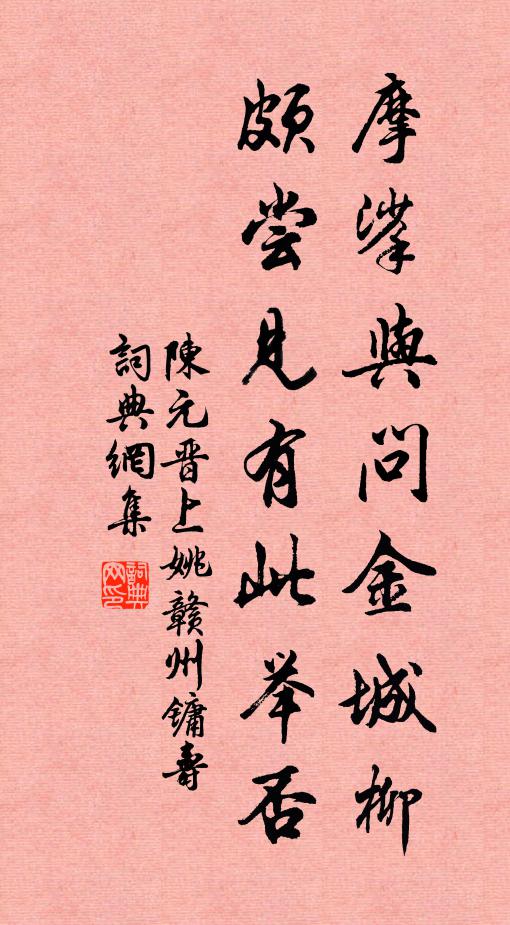 摩挲與問金城柳
頗尝見有此举否
陳元晋上姚贛州鏞壽
詞典網集
詞典网印